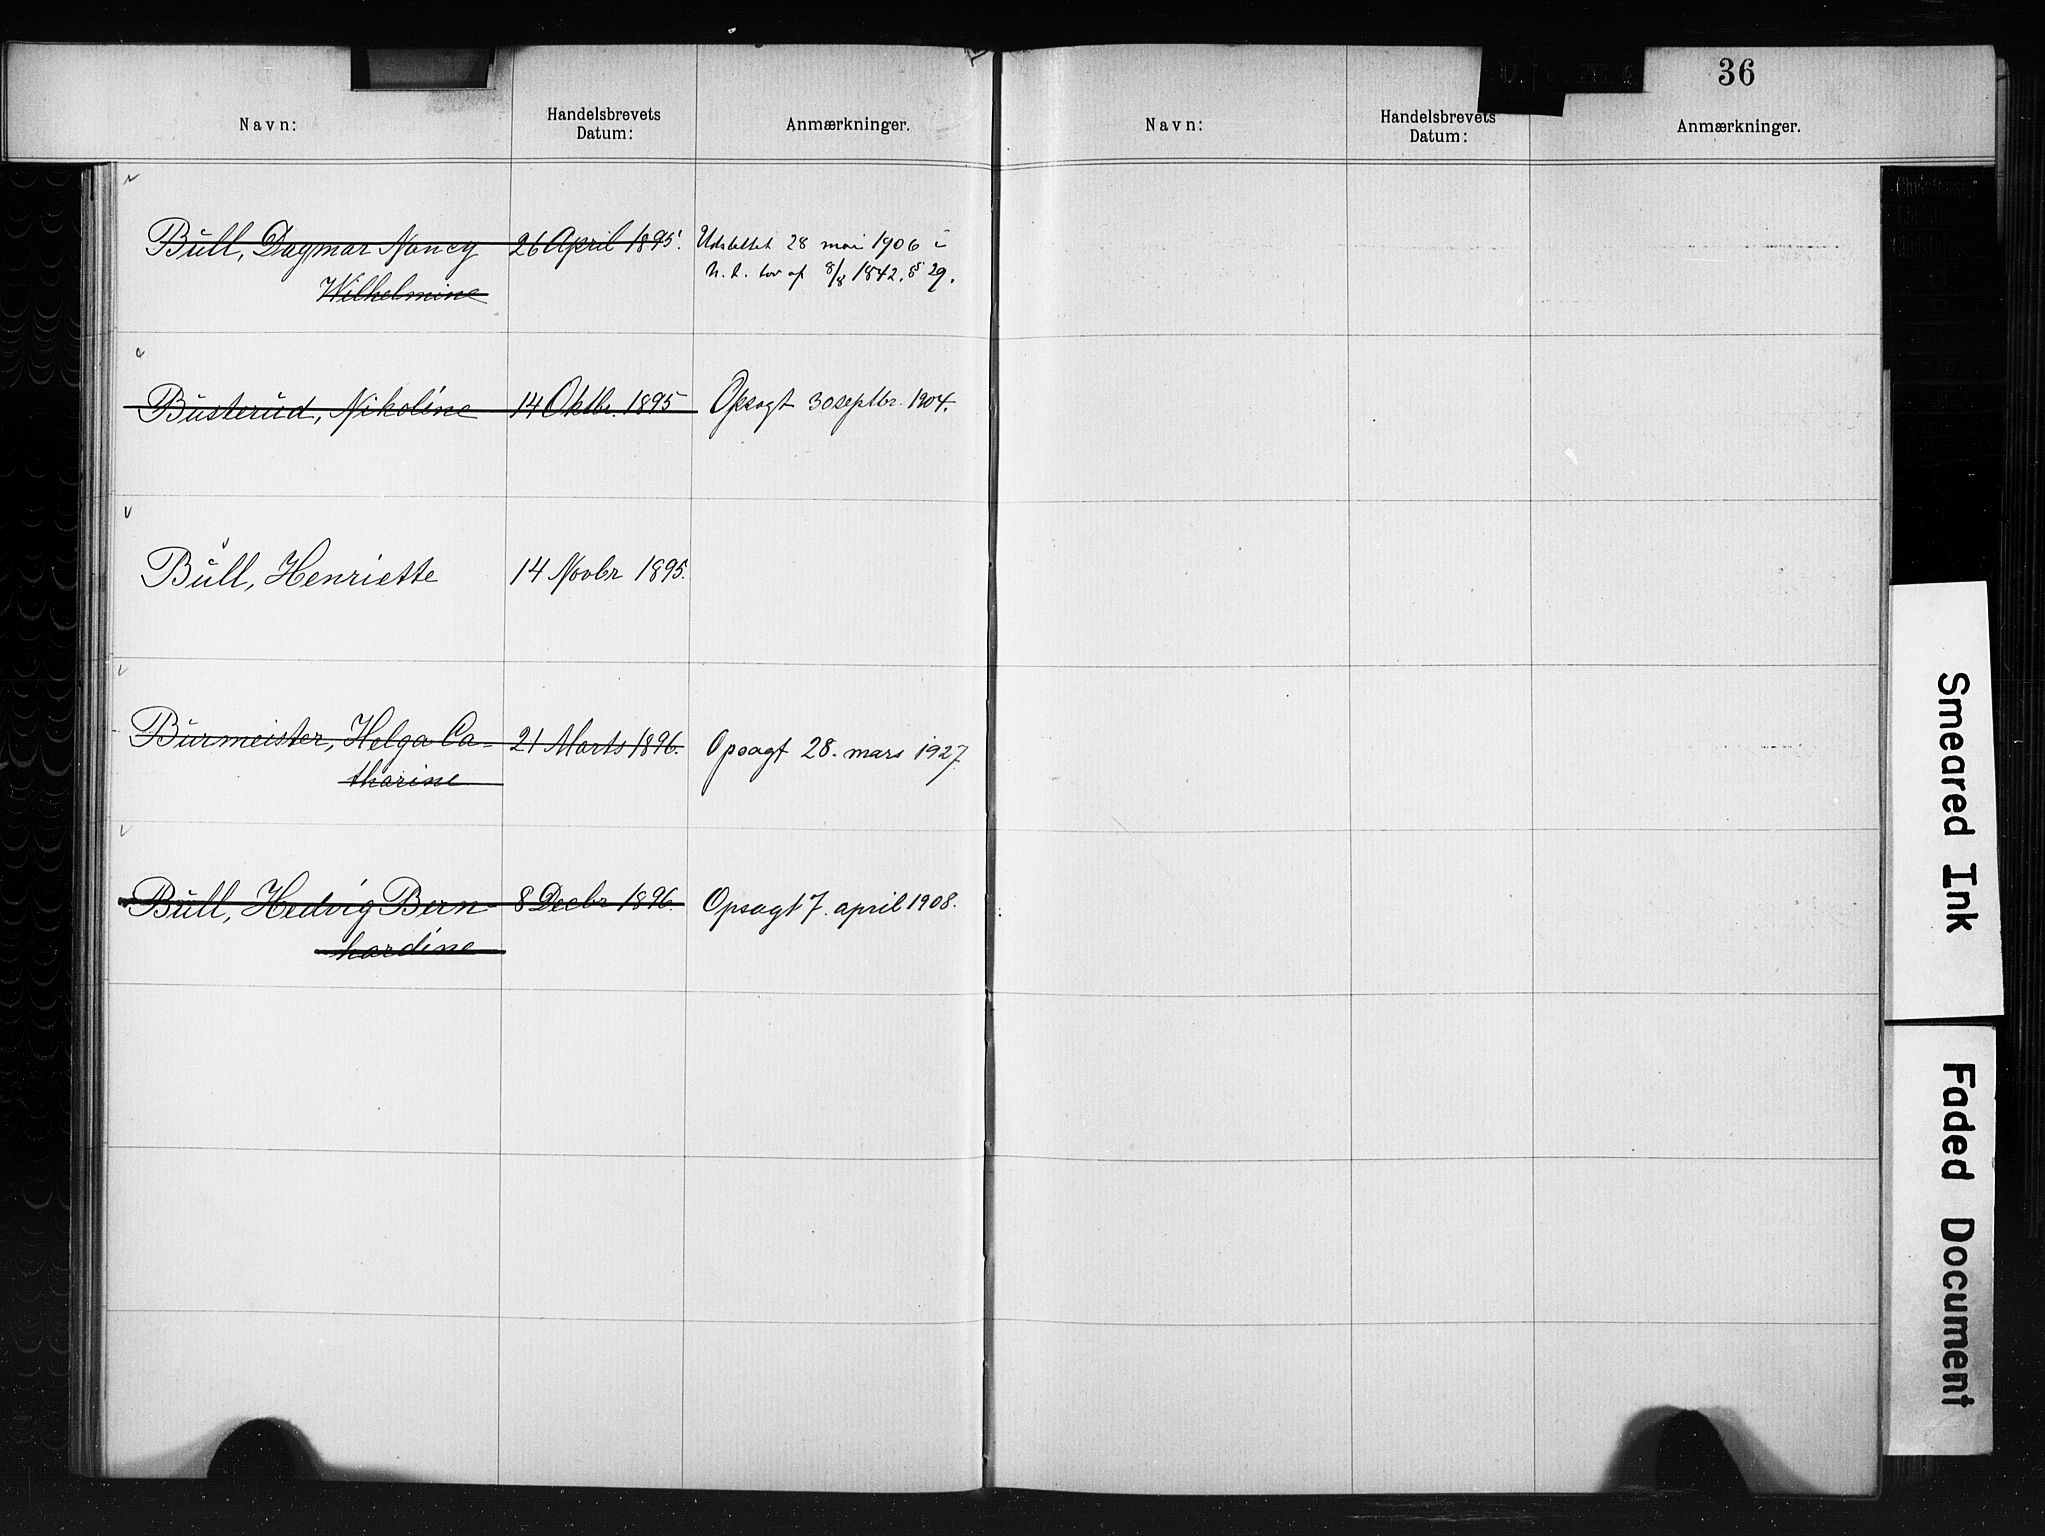 36
Navn: Handelsbrevets Datum: Anmærkninger. Navn: Handelsbrevets Datum: Anmærkninger.
Bull, Dagmar Nancy 26 April 1895. Udslettet 28 mai 1906 i
Wilhelmine h. t. lov af 8/8 1842, § 29.
Busterud, Nikoline 14 Oktbr. 1895 Opsagt 30 septbr. 1904.
Bull, Henriette 14 Novbr 1895.
Burmeister, Helga Ca- 21 Marts 1896. Opsagt 28. mars 1927.
tharine
Bull, Hedvig Bern- 8 Decbr 1896. Opsagt 7. april 1908.
hardine
Smeared Ink
Faded Document